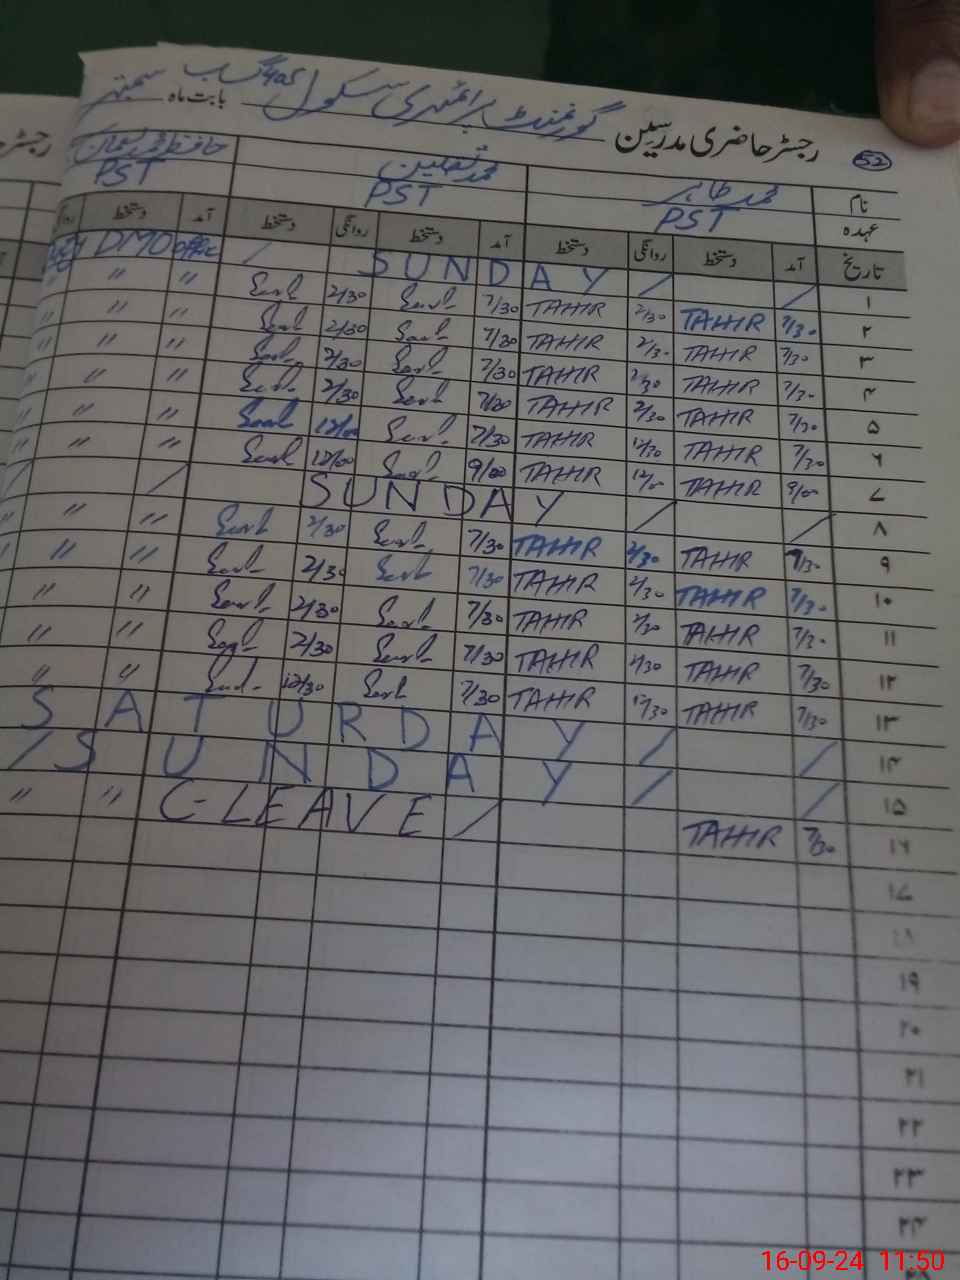 رجسٹر حاضری مدرسین گورنمنٹ پرائمری سکول 405 گ ب بابت ماہ ستمبر
52
نام محمد طاہر محمد ثقلین حافظ محمد
عہدہ PST PST PST
تاریخ آمد دستخط روانگی دستخط آمد دستخط روانگی دستخط آمد دستخط
۱ / / S U N D A Y / DMO Office
۲ 7/30 TAHIR 2/30 TAHIR 7/30 2/30 " "
۳ 7/30 TAHIR 2/30 TAHIR 7/30 2/30 " "
۴ 7/30 TAHIR 2/30 TAHIR 7/30 2/30 " "
۵ 7/30 TAHIR 2/30 TAHIR 7/30 2/30 " "
۶ 7/30 TAHIR 12/30 TAHIR 7/30 12/00 " "
۷ 9/00 TAHIR 12/00 TAHIR 9/00 12/00 " "
۸ / / SUNDAY / /
۹ 7/30 TAHIR 2/30 TAHIR 7/30 2/30 " "
۱۰ 7/30 TAHIR 2/30 TAHIR 7/30 2/30 " "
۱۱ 7/30 TAHIR 2/30 TAHIR 7/30 2/30 " "
۱۲ 7/30 TAHIR 2/30 TAHIR 7/30 2/30 " "
۱۳ 7/30 TAHIR 12/30 TAHIR 7/30 12/30 " "
۱۴ / / S A T U R D A Y
۱۵ / / S U N D A Y /
۱۶ 7/30 TAHIR C-LEAVE / " "
۱۷
۱۸
۱۹
۲۰
۲۱
۲۲
۲۳
۲۴
16-09-24 11:50